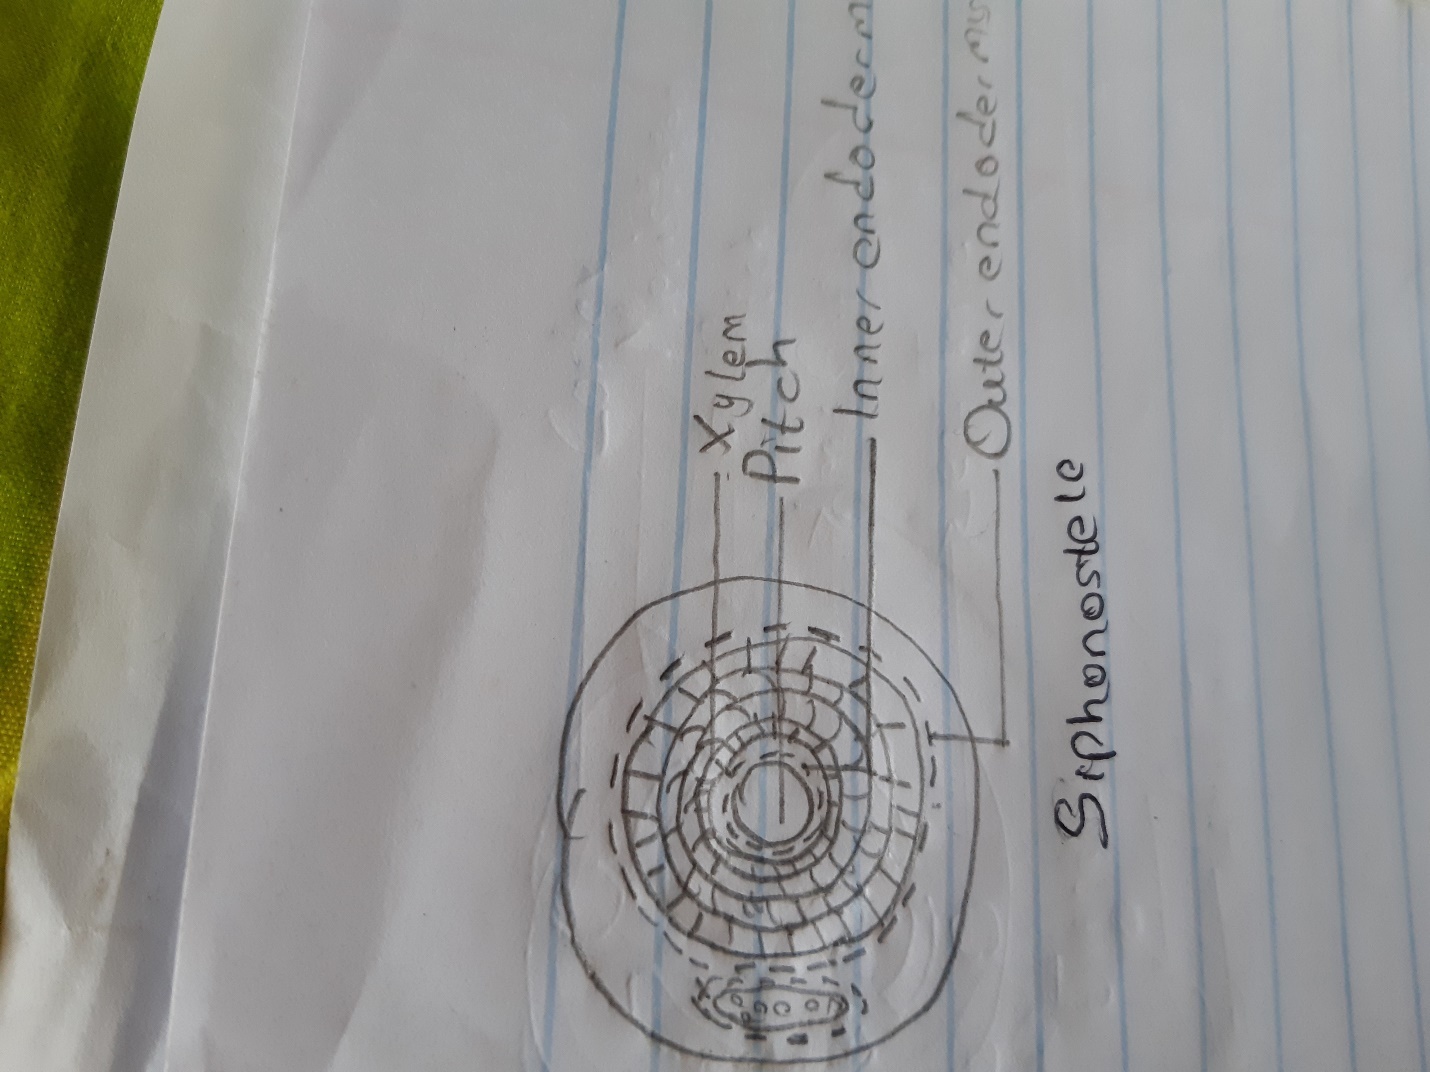 Xylem
Pitch
Inner endoderm
Outer endodermis
Siphonostele